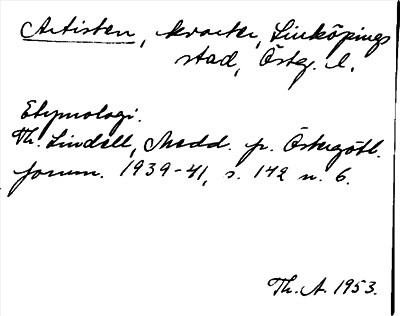 Artisten, kvarter, Linköpings
stad, Östg. l.
Etymologi.
Th. Lindell, Medd. fr. Östergötl.
fornm. 1939-41, s. 142 n. 6.
Th. A. 1953.